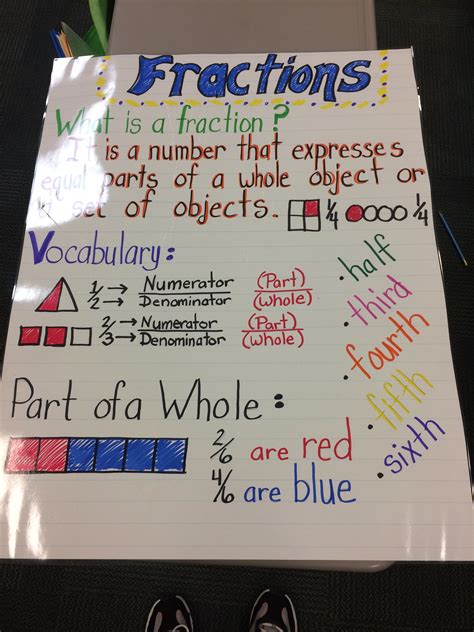 Fractions
What is a fraction?
It is a number that expresses
equal parts of a whole object or
a set of objects. 1/4 1/4
Vocabulary:
1/2 → Numerator (Part)
→ Denominator (Whole)
2/3 → Numerator (Part)
→ Denominator (Whole)
• half
• third
• fourth
• fifth
• sixth
Part of a Whole:
2/6 are red
4/6 are blue